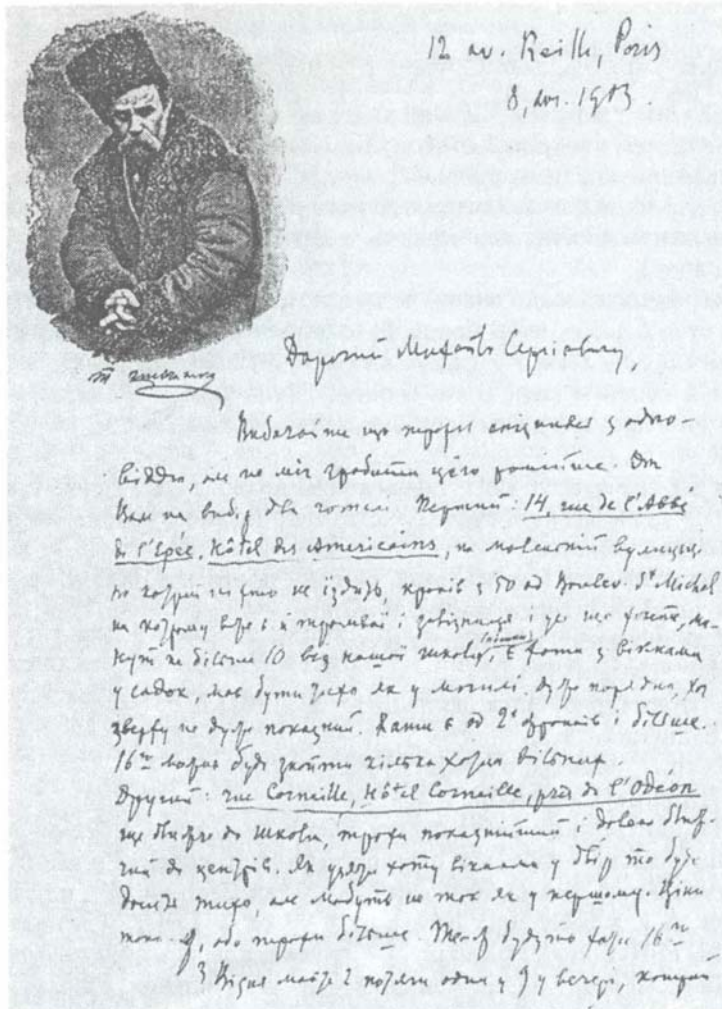 12 av. Reille, Paris
8, avr. 1903.
Т. Шевченко
Дорогий Михайле Сергієвичу,
Вибачайте що трохи опізнився з одпо-
віддю, але не міг зробити цего раніше. От
Вам на вибір два готелі. Перший: 14 rue de l'Abbé
de l'Epée, Hôtel des Américains, на маленькій вулиці
по котрій ніхто не їздить, кроків з 50 од Boulev. St Michel
на котрому вже є й трамваї і завізниця і усе що хочете, мі-
нут не більше 10 від нашої школи, Є хати з вікнами
у садок, має бути тихо як у могилі. Дуже порядна, хоч
зверху не дуже показний. Хати є од 2х франків і більше.
16го можна буде знайти кілька хат вільних.
Другий: rue Corneille, Hôtel Corneille, près de l'Odéon
ще ближче до школи, трохи показнійший і доволі близь-
кий до центрів. Як узяти хату вікнами у двір то буде
досить тихо, але мабуть не так як у першому. Ціни
такі ж, або трохи більше. Теж будуть хати 16го
З Відня маєте 2 потяги один у 9 у вечері, котрий